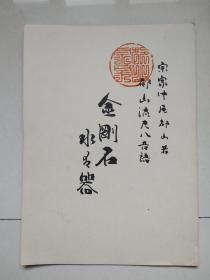 宗家中尾都山著
都山流尺八音譜
金剛石
水は器